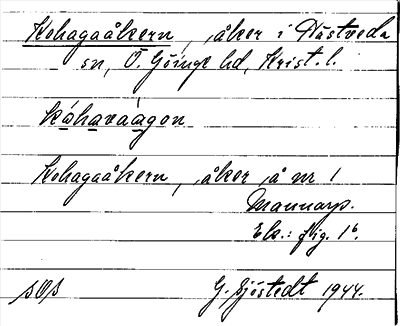 Kohagaåkern, åker i Hästveda
sn, Ö. Göinge hd, Krist. l.
kóhavaágon
Kohagaåkern, åker å nr 1
Mannarp.
Ek.: fig. 1
G. Sjöstedt 1944.